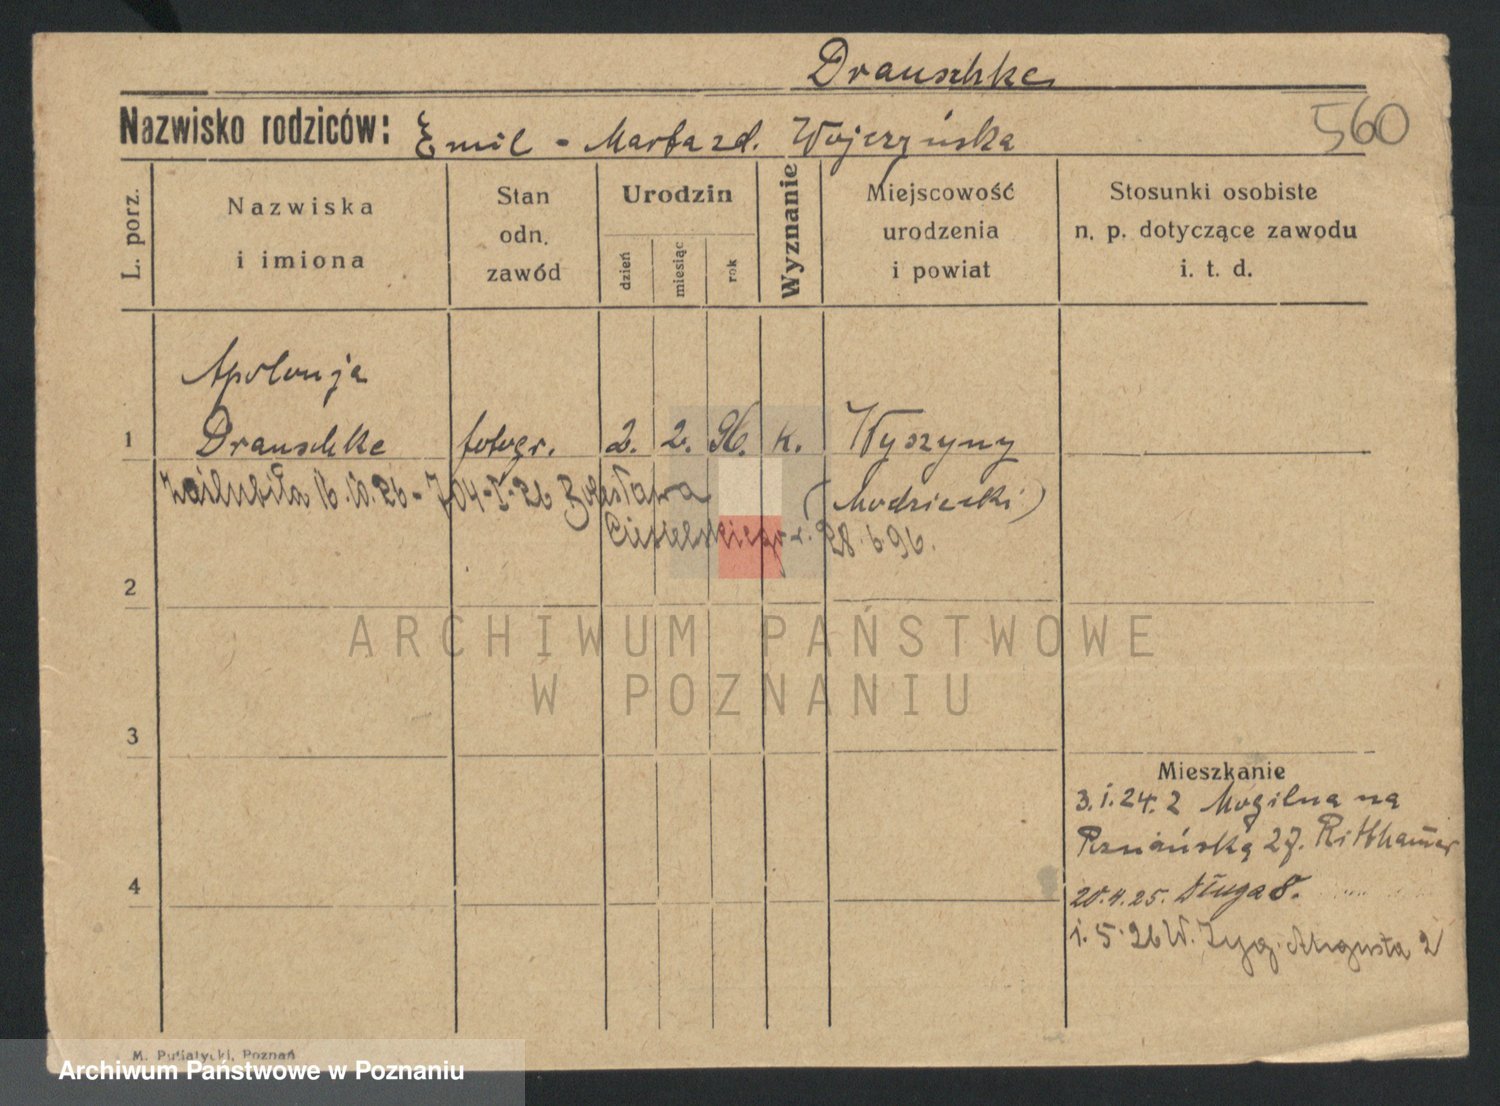 Drauschke
560
Nazwisko rodziców: Emil - Marta zd. Wojczyńska
L. porz.
Nazwiska
i imiona
Stan
odn.
zawód
Urodzin
dzień
miesiąc
rok
Wyznanie
Miejscowość
urodzenia
i powiat
Stosunki osobiste
n. p. dotyczące zawodu
i. t. d.
Apolonja
1 Drauschke fotogr. 2. 2. 96. k. Wyszyny
zaślubiła 16.10.26 - 704-I-26 Bolesława (Modrzecki)
Cisielskiego r. 28.6.96.
2
ARCHIWUM PAŃSTWOWE
W POZNANIU
3
Mieszkanie
3.1.24. z Mogilna na
Poznańską 27. Ritthamer
4
20.4.25. Długa 8.
1.5.26 W. Zyg. Augusta 2
M. Putiatycki, Poznań
Archiwum Państwowe w Poznaniu